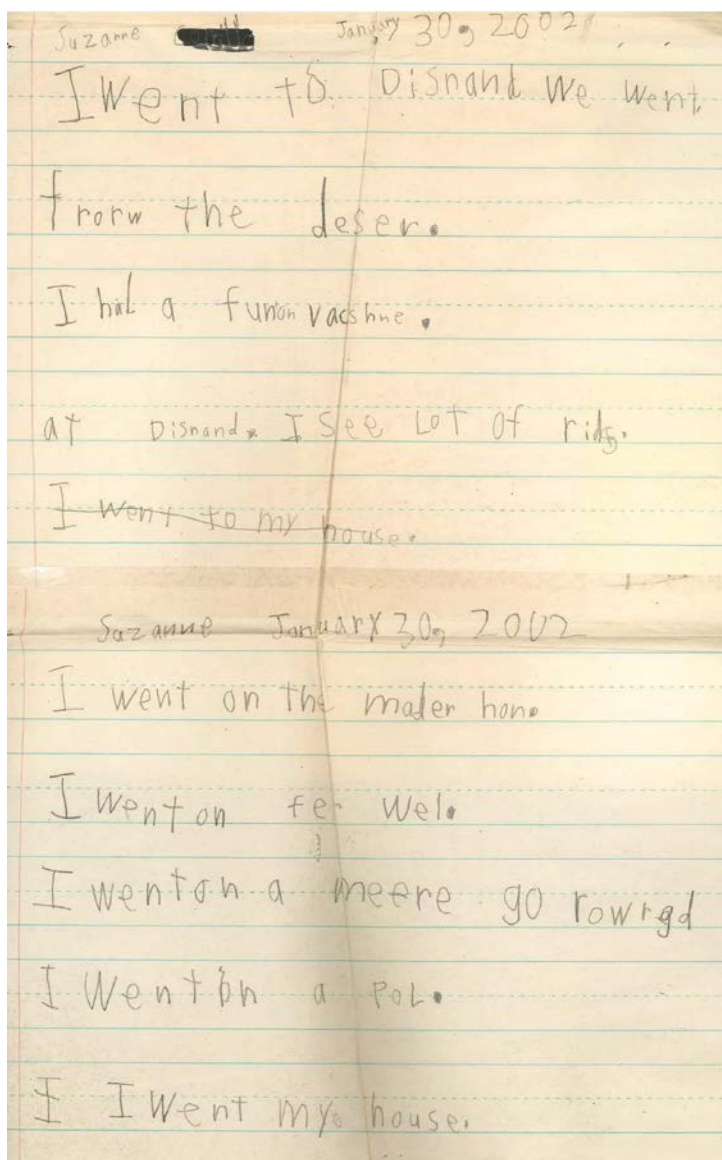 Suzanne January 30, 2002
I Went to Disnand We went
frorw the deser.
I had a funon vacshne.
at Disnand. I see Lot of rids.
I went to my house.
Suzanne January 30, 2002
I went on the mader hon.
I went on fer wel.
I went on a meere go rowrgd
I went on a poL.
I I went my house.